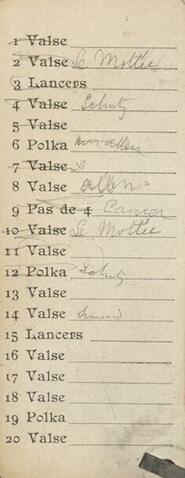 1 Valse
2 Valse Le Mottee
3 Lancers
4 Valse Schutz
5 Valse
6 Polka
7 Valse
8 Valse Allen
9 Pas de 4 Cancer
10 Valse Le Mottee
11 Valse
12 Polka Schutz
13 Valse
14 Valse
15 Lancers
16 Valse
17 Valse
18 Valse
19 Polka
20 Valse